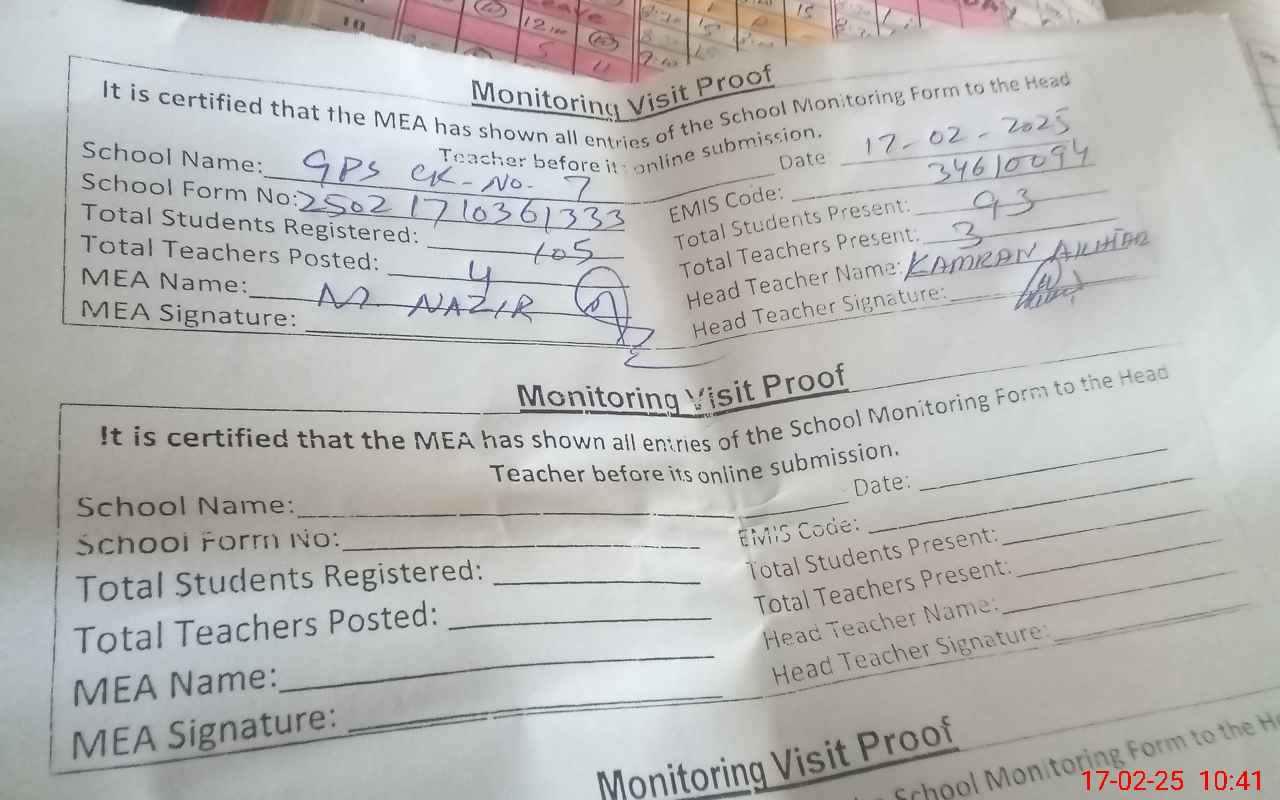 12.00
Monitoring Visit Proof
It is certified that the MEA has shown all entries of the School Monitoring Form to the Head
Teacher before its online submission.
School Name: GPS CK-No. 7 Date: 17-02-2025
School Form No: 2502171036 1333 EMIS Code: 34610094
Total Students Registered: 105 Total Students Present: 93
Total Teachers Posted: 4 Total Teachers Present: 3
MEA Name: M. NAZIR Head Teacher Name: KAMRAN AKHTAR
MEA Signature: Head Teacher Signature:
Monitoring Visit Proof
It is certified that the MEA has shown all entries of the School Monitoring Form to the Head
Teacher before its online submission.
School Name: Date:
School Form No: EMIS Code:
Total Students Registered: Total Students Present:
Total Teachers Posted: Total Teachers Present:
MEA Name: Head Teacher Name:
MEA Signature: Head Teacher Signature:
Monitoring Visit Proof
School Monitoring Form to the
17-02-25 10:41